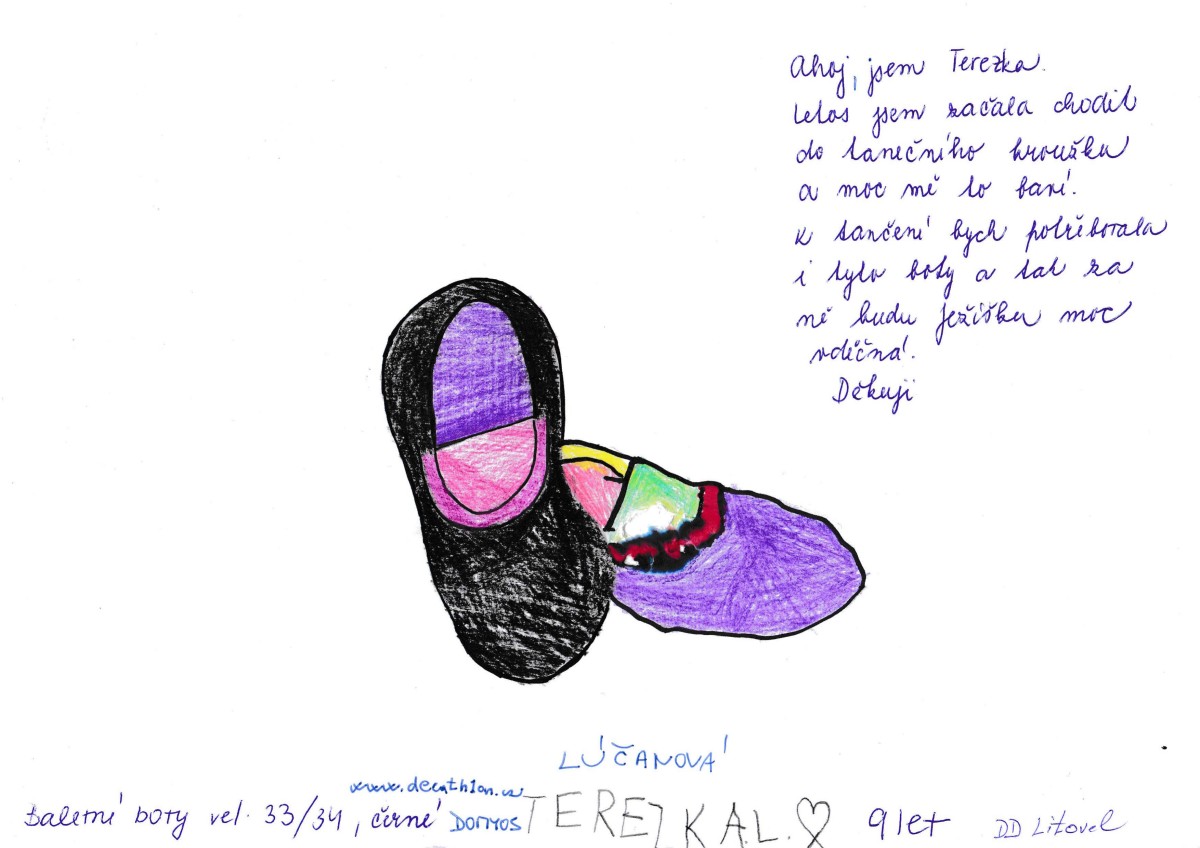 Ahoj, jsem Terezka.
Letos jsem začala chodit
do tanečního kroužku
a moc mě to baví.
K tančení bych potřebovala
i tyto boty a tak za
ně budu ježíšku moc
vděčná.
Děkuji
LÚČANOVÁ
www.decathlon.cz
Baletní boty vel. 33/34, černé DOMYOS TEREZKA L. 9 let DD Litovel